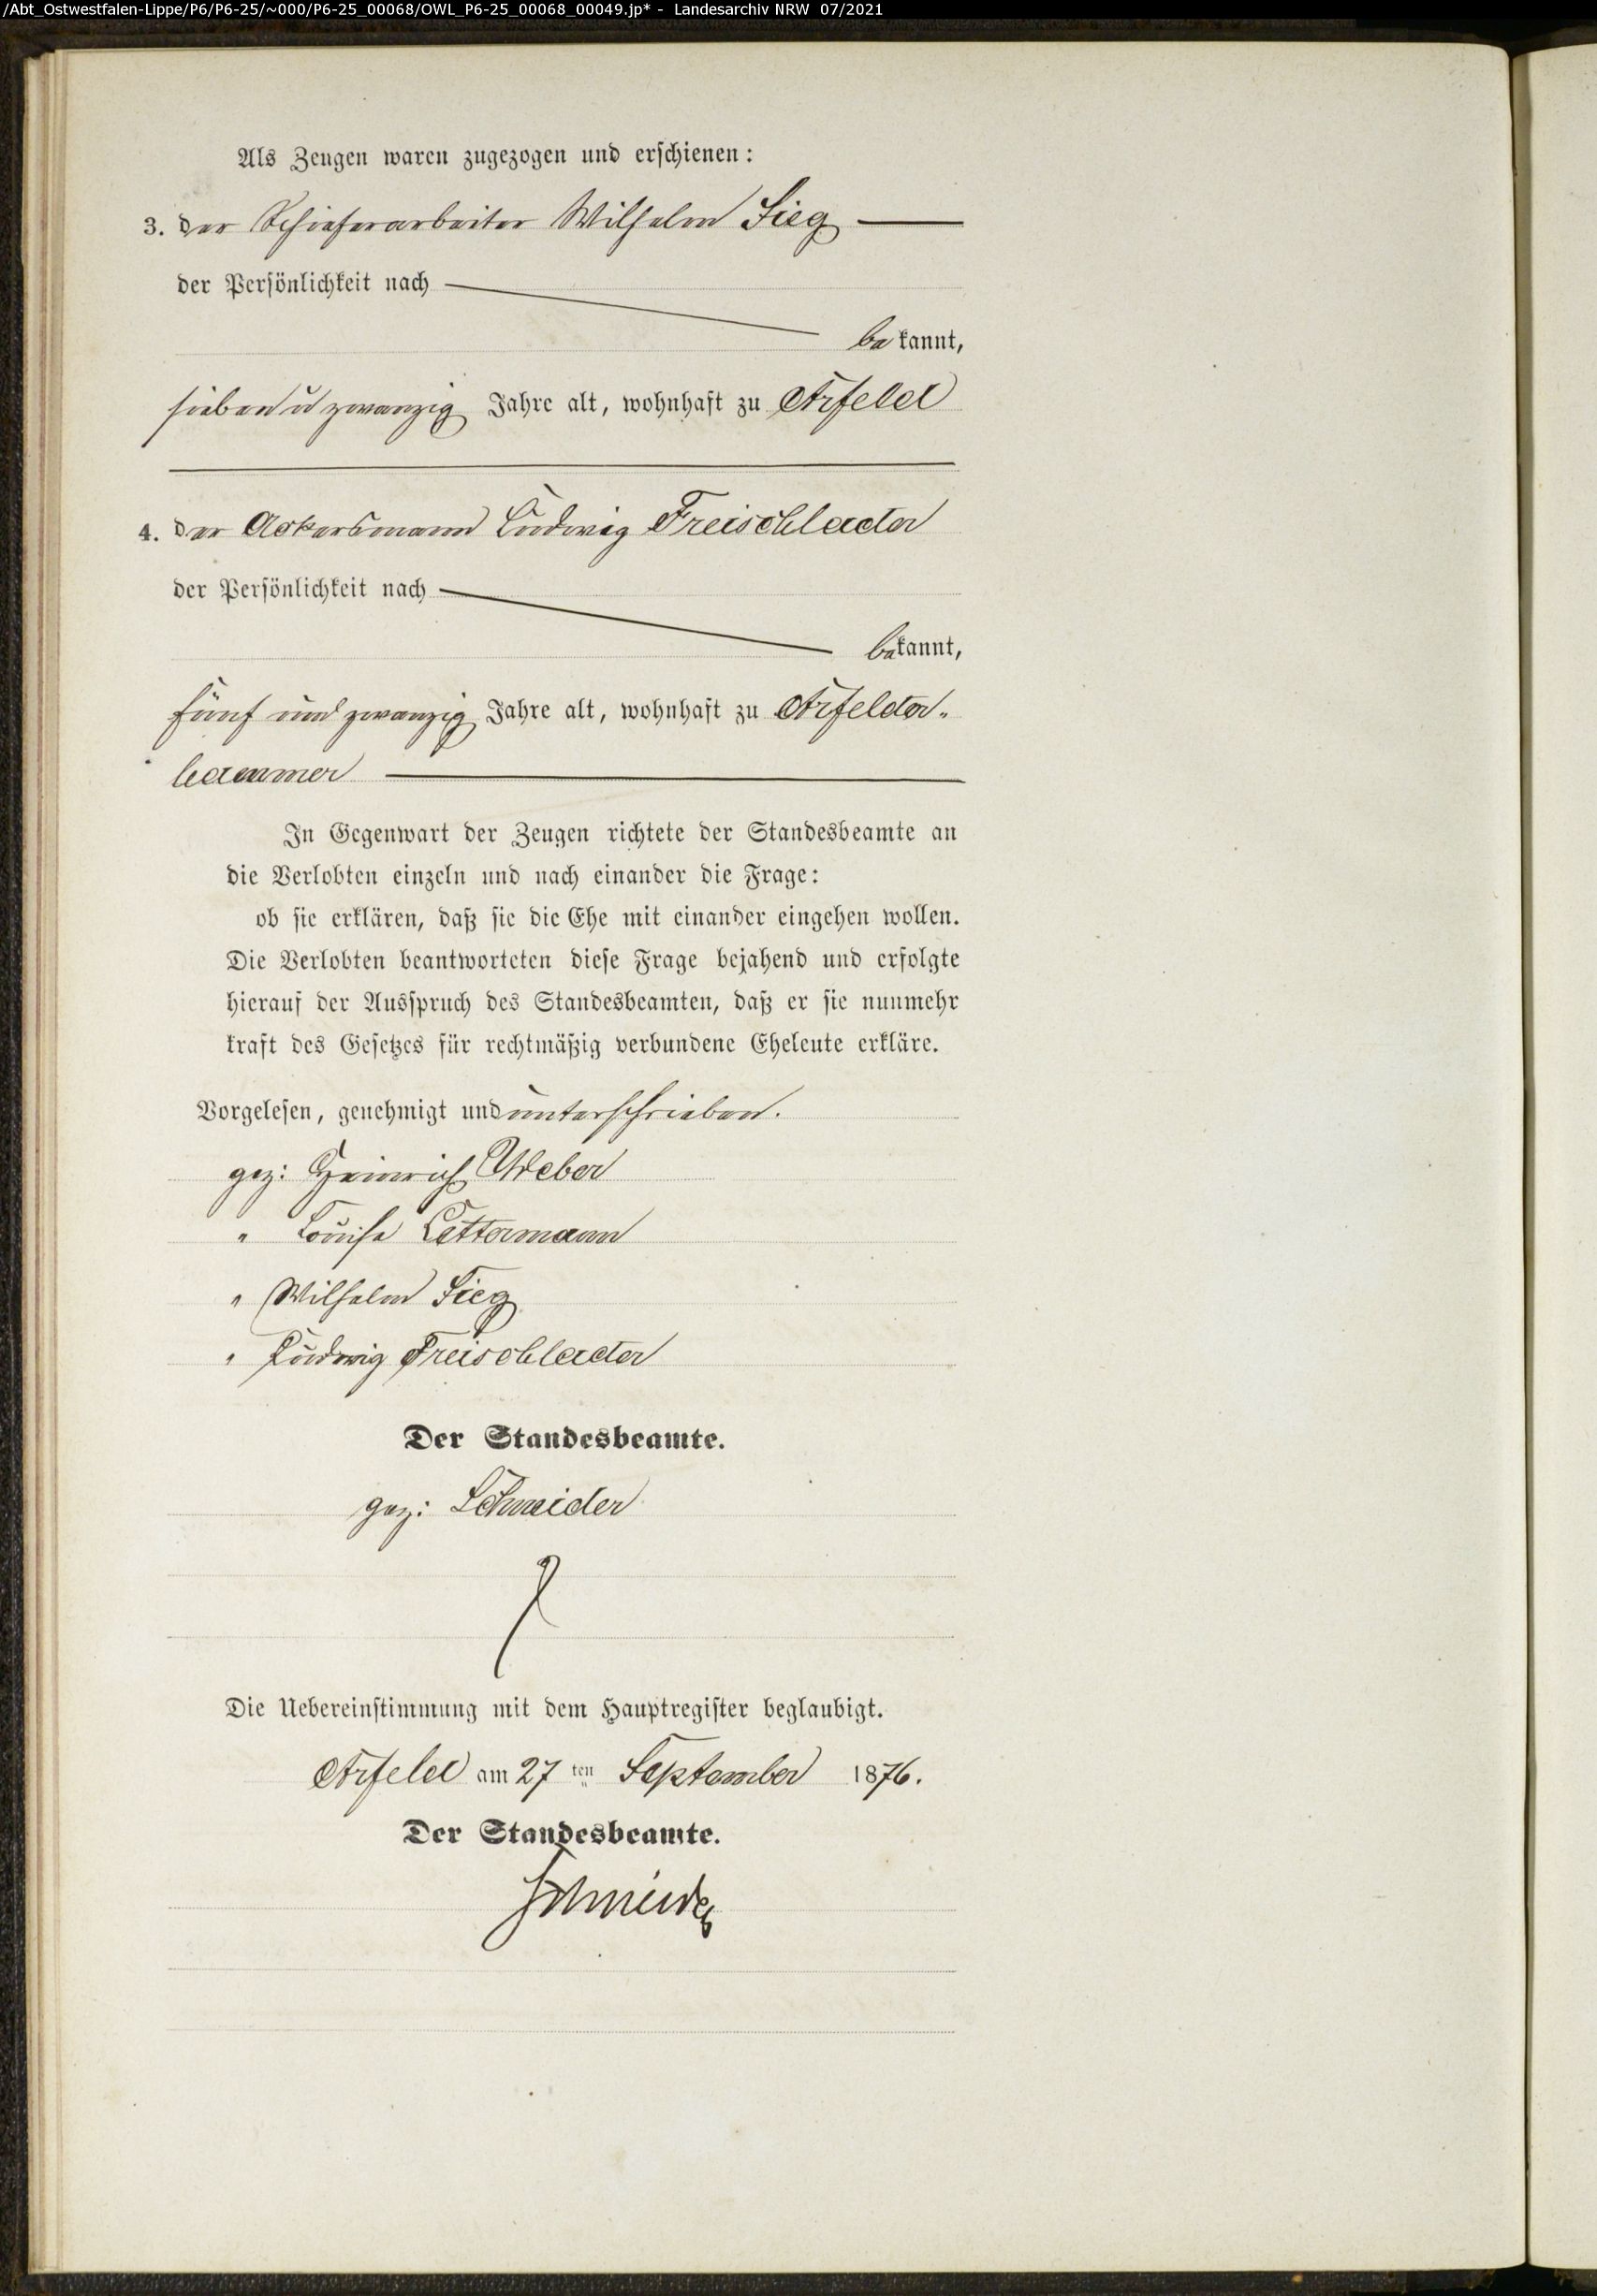 /Abt_Ostwestfalen-Lippe/P6/P6-25/~000/P6-25_00068/OWL_P6-25_00068_00049.jp* - Landesarchiv NRW 07/2021
Als Zeugen waren zugezogen und erschienen:
3. der Schieferarbeiter Wilhelm Sieg
der Persönlichkeit nach
bekannt,
sieben u zwanzig Jahre alt, wohnhaft zu Arfeld
4. der Ackersmann Ludwig Freischlader
der Persönlichkeit nach
bekannt,
fünf und zwanzig Jahre alt, wohnhaft zu Arfelder-
hammer
In Gegenwart der Zeugen richtete der Standesbeamte an
die Verlobten einzeln und nach einander die Frage:
ob sie erklären, daß sie die Ehe mit einander eingehen wollen.
Die Verlobten beantworteten diese Frage bejahend und erfolgte
hierauf der Ausspruch des Standesbeamten, daß er sie nunmehr
kraft des Gesetzes für rechtmäßig verbundene Eheleute erkläre.
Vorgelesen, genehmigt und unterschrieben.
gez: Heinrich Weber
" Louise Lettermann
" Wilhelm Sieg
" Ludwig Freischlader
Der Standesbeamte.
gez: Schneider
Die Uebereinstimmung mit dem Hauptregister beglaubigt.
Arfeld am 27 ten September 1876.
Der Standesbeamte.
Schneider